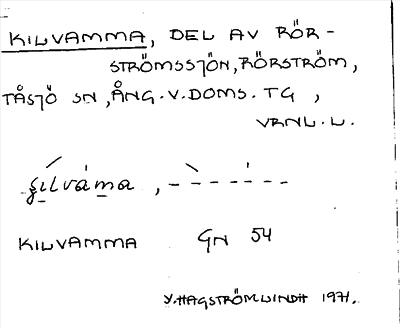 KILVAMMA, DEL AV RÖR-
STRÖMSSJÖN, RÖRSTRÖM,
TÅSJÖ SN, ÅNG. V. DOMS. TG,
VRNL. L.
ʂilváma, – – – – – – –
KILVAMMA GN 54
Y. HAGSTRÖM LINDH 1971.